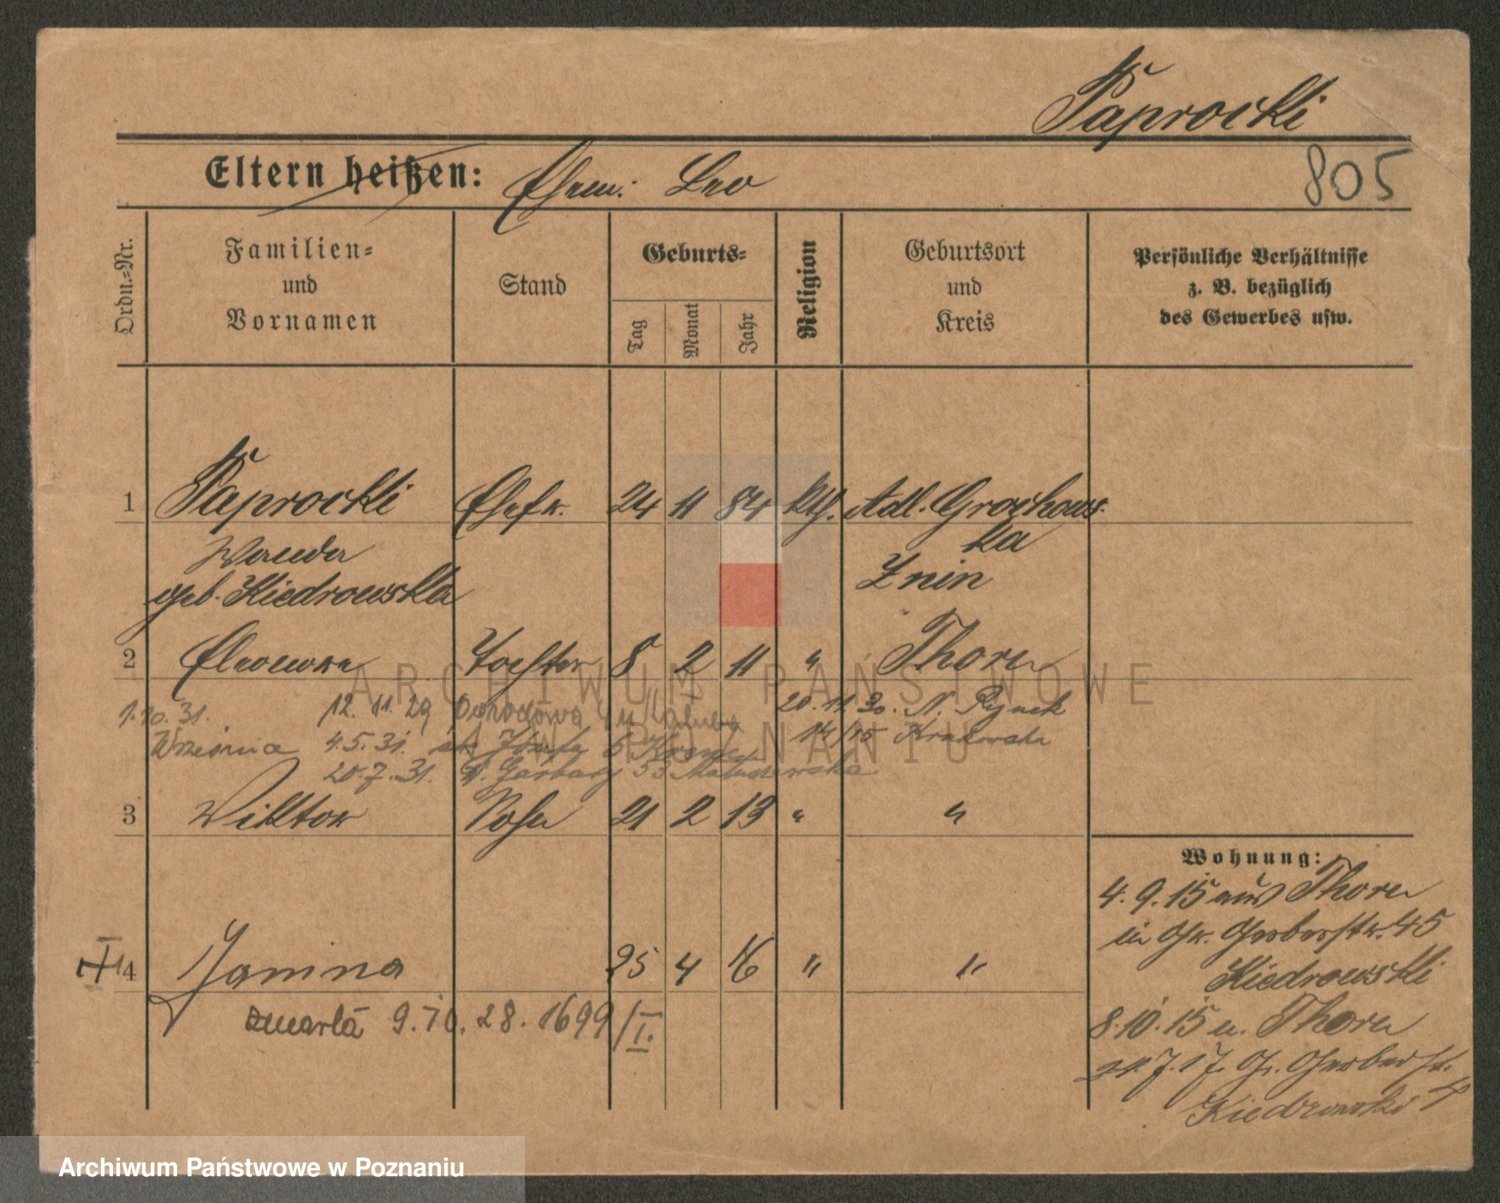 Paprocki
Eltern heißen: Ehem: Leo
805
Ordn.-Nr.
Familien-
und
Vornamen
Stand
Geburts-
Tag
Monat
Jahr
Religion
Geburtsort
und
Kreis
Persönliche Verhältnisse
z. B. bezüglich
des Gewerbes usw.
1 Paprocki Ehefr. 24 11 84 kth. Adl. Grochows
ka
Wanda
Znin
geb. Kiedrowska
2 Eleonore Tochter 8 2 11 " Thorn
1.10.31. 12.11.29 Ogrodowa 20.11.30. N. Rynek
Września 4.5.31. 14/15 Krakowska
20.7.31. W. Garbary 53 Matuszewska
3 Viktor Sohn 21 2 13 " "
Wohnung:
4.9.15 aus Thorn
in Gr. Gerberstr. 45
Kiedrowski
4 Janina 25 4 16 " "
zmarła 9.10.28. 1699/I.
8.10.15 n. Thorn
7.17. Gr. Gerberstr.
Kiedrowski
ARCHIWUM PAŃSTWOWE
W POZNANIU
Archiwum Państwowe w Poznaniu